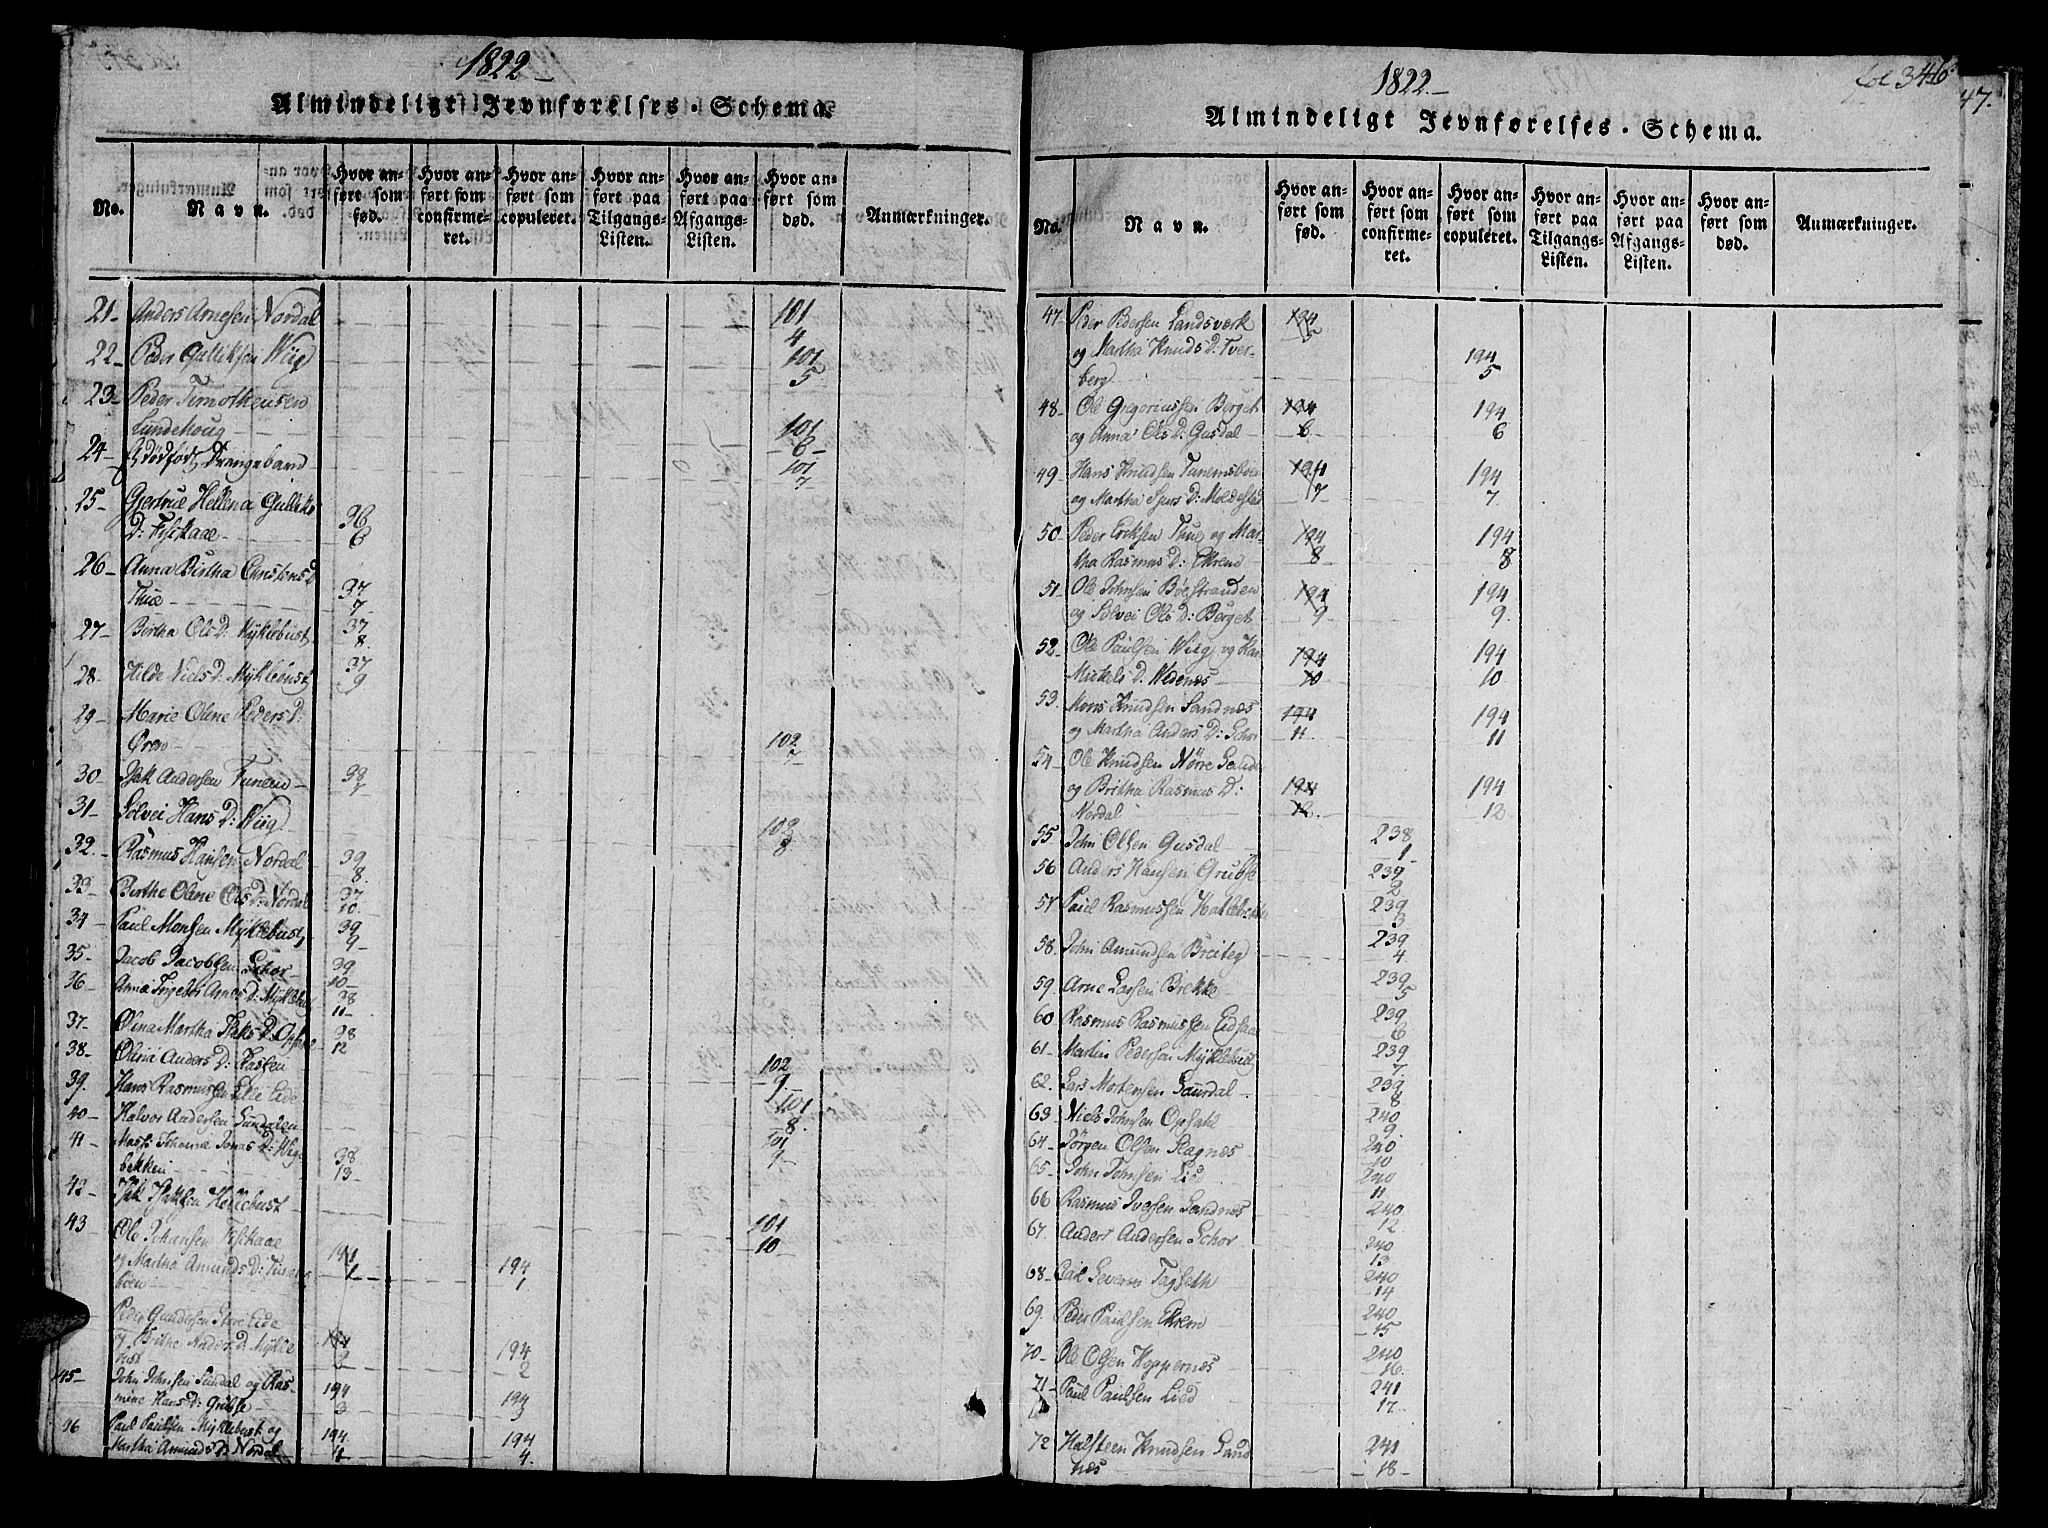 1822
Almindeligt Jevnførelses-Schema.
No.
Navn.
Hvor anført som fød.
Hvor anført som confirmeret.
Hvor anført som copuleret.
Hvor anført paa Tilgangs-Listen.
Hvor anført paa Afgangs-Listen.
Hvor anført som død.
Anmærkninger.
21 Anders Arnesen Nordal 101
4
22 Peder Gulliksen Wiig 101
5
23 Peder Timotheusen
Lundehoug 101
6
24 Drengebarn 101
7
25 Gjertrue Hellena Gulliks
D: Fiskaae 36
6
26 Anna Birtha Christens D:
Thue 37
7
27 Birtha Ols D: Myklebust 37
8.
28 Hilde Niels D: Myklebust 37
9
29 Marie Oline Peders D:
102
7
30 Isak Andersen Tunem 38
31 Solvei Hans D: Wiig 102
8
32 Rasmus Hansen Nordal 39
8.
33 Birthe Oline Ols D: Nordal 37
10.
34 Paul Monsen Myklebust 39
9
35 Jacob Jacobsen Schor 39
10
36 Anna Ingebor Arnes D: 38
11
37 Olina Martha D: 38
12
38 Olina Anders D: 102
9
39. Hans Rasmussen Lille Eide 101
8.
40 Halvor Andersen 101
9
41 Johanna Jonas D: Wig
bekken 38
13
42 Hellebust
43 Ole Johansen Fiskaae 101
10
og Martha Amunds D: Tunems
bøen 194
1
194
1
Peder Gundersen Store Eide
og Brithe Anders D: Mykle
194
2
194
2
45 John Johnsen Sundal og Ras-
mine Hans D: Grubse 194
3
194
3
46 Paul Paulsen Myklebust og
Martha Amunds D: Nordal 194
4
194
4.
1822.
346
47.
Almindeligt Jevnførelses-Schema.
No.
Navn.
Hvor anført som fød.
Hvor anført som confirmeret.
Hvor anført som copuleret.
Hvor anført paa Tilgangs-Listen.
Hvor anført paa Afgangs-Listen.
Hvor anført som død.
Anmærkninger.
47 Peder Pedersen Landsværk 194
5
og Martha Knuds D: Tver-
berg 194
5
48 Ole Gregoriussen Berget 194 194
og Anna Ols D: Gusdal 6 6
49 Hans Knudsen Tunemsbøen 194 194
og Martha Sjurs D: Moldestad 7 7.
50 Peder Eriksen Thue og Mar- 194 194
tha Rasmus D: Ekrem 8 8
51. Ole Johnsen Bøestranden 194 194
og Solvei Ols D: Berget 9 9.
52 Ole Paulsen Wiig og Kar 194 194
Mickels D: Wedenes 10 10
53. Mons Knudsen Sandnæs 194 194
og Martha Anders D: Schor 11. 11
54 Ole Knudsen Nørre
og Britha Rasmus D: 194 194
Nordal 12. 12
55 John Olsen Gusdal 238
1
56 Anders Hansen Grubse 239
2
57 Paul Rasmussen 239
3
58. John Amundsen Breiteg 239
4
59. Arne Larsen Brekke 239
5
60 Rasmus Rasmussen Eidsaae 239
6
61 Martin Pedersen Myklebust 239
7
62. Lars Mortensen Saurdal 239
8
63 Niels Johnsen Opsahl 240
9
64 Jørgen Olsen Stagnæs 240
10
65 John Johnsen Lied 240
11
66 Rasmus Iversen Sandnæs 240
12
67. Anders Andersen Schor 240
13
68 Carl Severin Tagseth 240
14
69. Peder Paulsen Ekrem 240
15
70 Ole Olsen Koppernæs 240
16.
71 Paul Paulsen Lied 241
17
72 Halsteen Knudsen Sand 241
næs 18